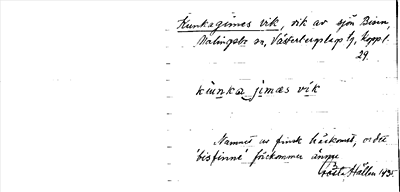 Kunkagimes vik, vik av sjön Bisen,
Malingsbo sn, Västerbergslags
29.
kunka jimæs vik
Namnet av finsk härkomst, ordet
'bisfinne' förekommer ännu
Gösta Hallen 1935